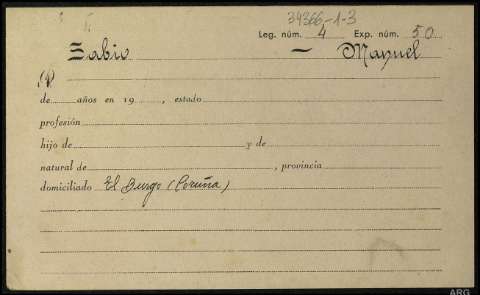 34366-1-3
Leg. núm. 4 Exp. núm. 50
Sabio — Manuel
de años en 19 , estado
profesión
hijo de y de
natural de , provincia
domiciliado El Burgo (Coruña)
ARG